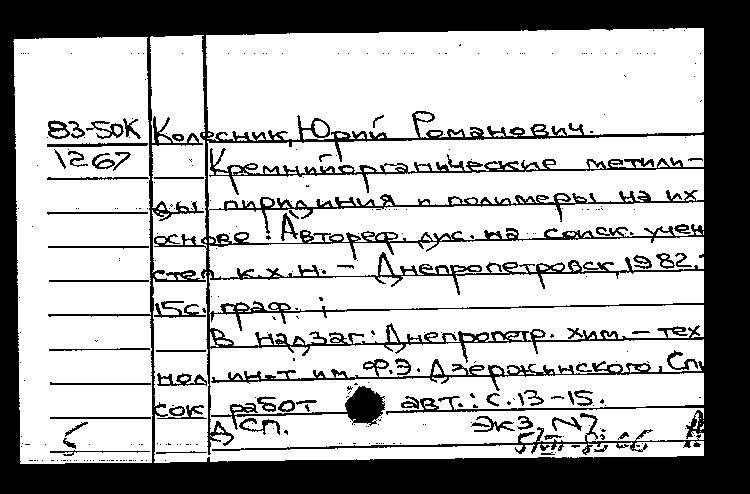 83-50К Колесник, Юрий Романович.
1267 Кремнийорганические метили-
ды пиридиния и полимеры на их
основе: Автореф. дис. на соиск. учен
степ к.х.н. - Днепропетровск, 1982.-
15с., граф. ;
В надзаг.: Днепропетр. хим. - тех
нол. ин-т им. Ф.Э. Дзержинского. Спи
сок работ авт.: с. 13-15.
ДСП. Экз. N7.
5